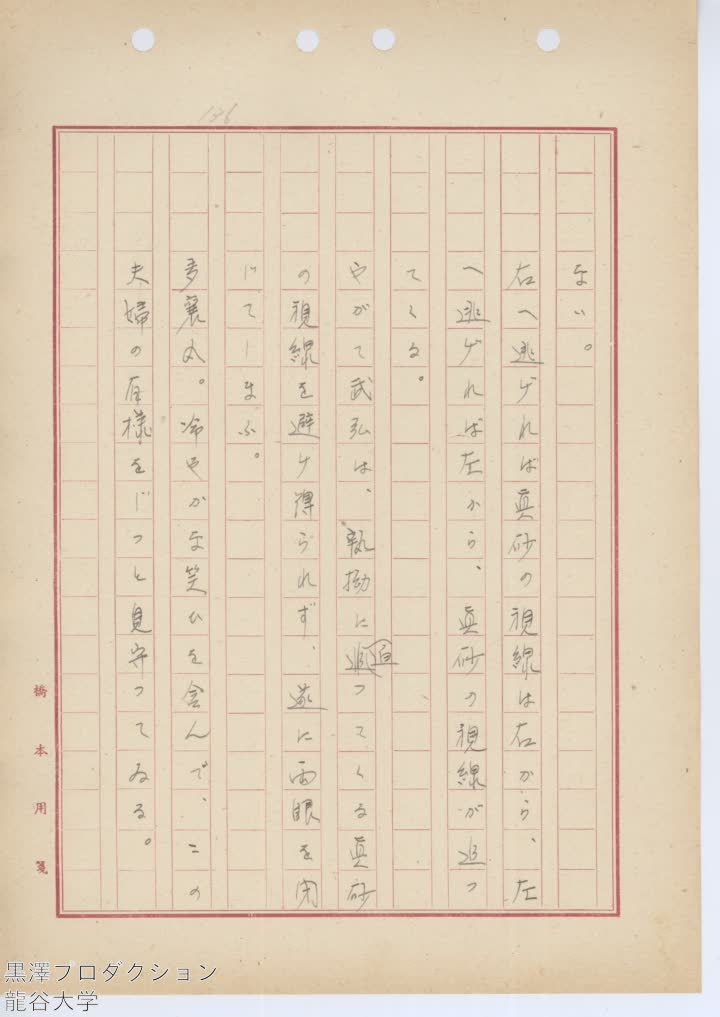 136
ない。
右へ逃げれば真砂の視線は右から、左
へ逃げれば左から、真砂の視線が追つ
てくる。
やがて武弘は、執拗に追つてくる真砂
の視線を避け得られず、遂に両眼を閉
じてしまふ。
多襄丸。冷やかな笑ひを含んで、この
夫婦の有様をじつと見守つてゐる。
橋本用箋
黒澤プロダクション
龍谷大学